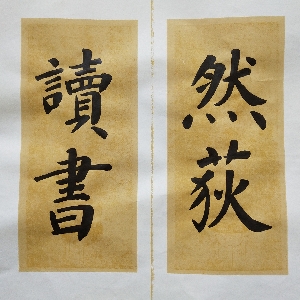 然荻
讀書